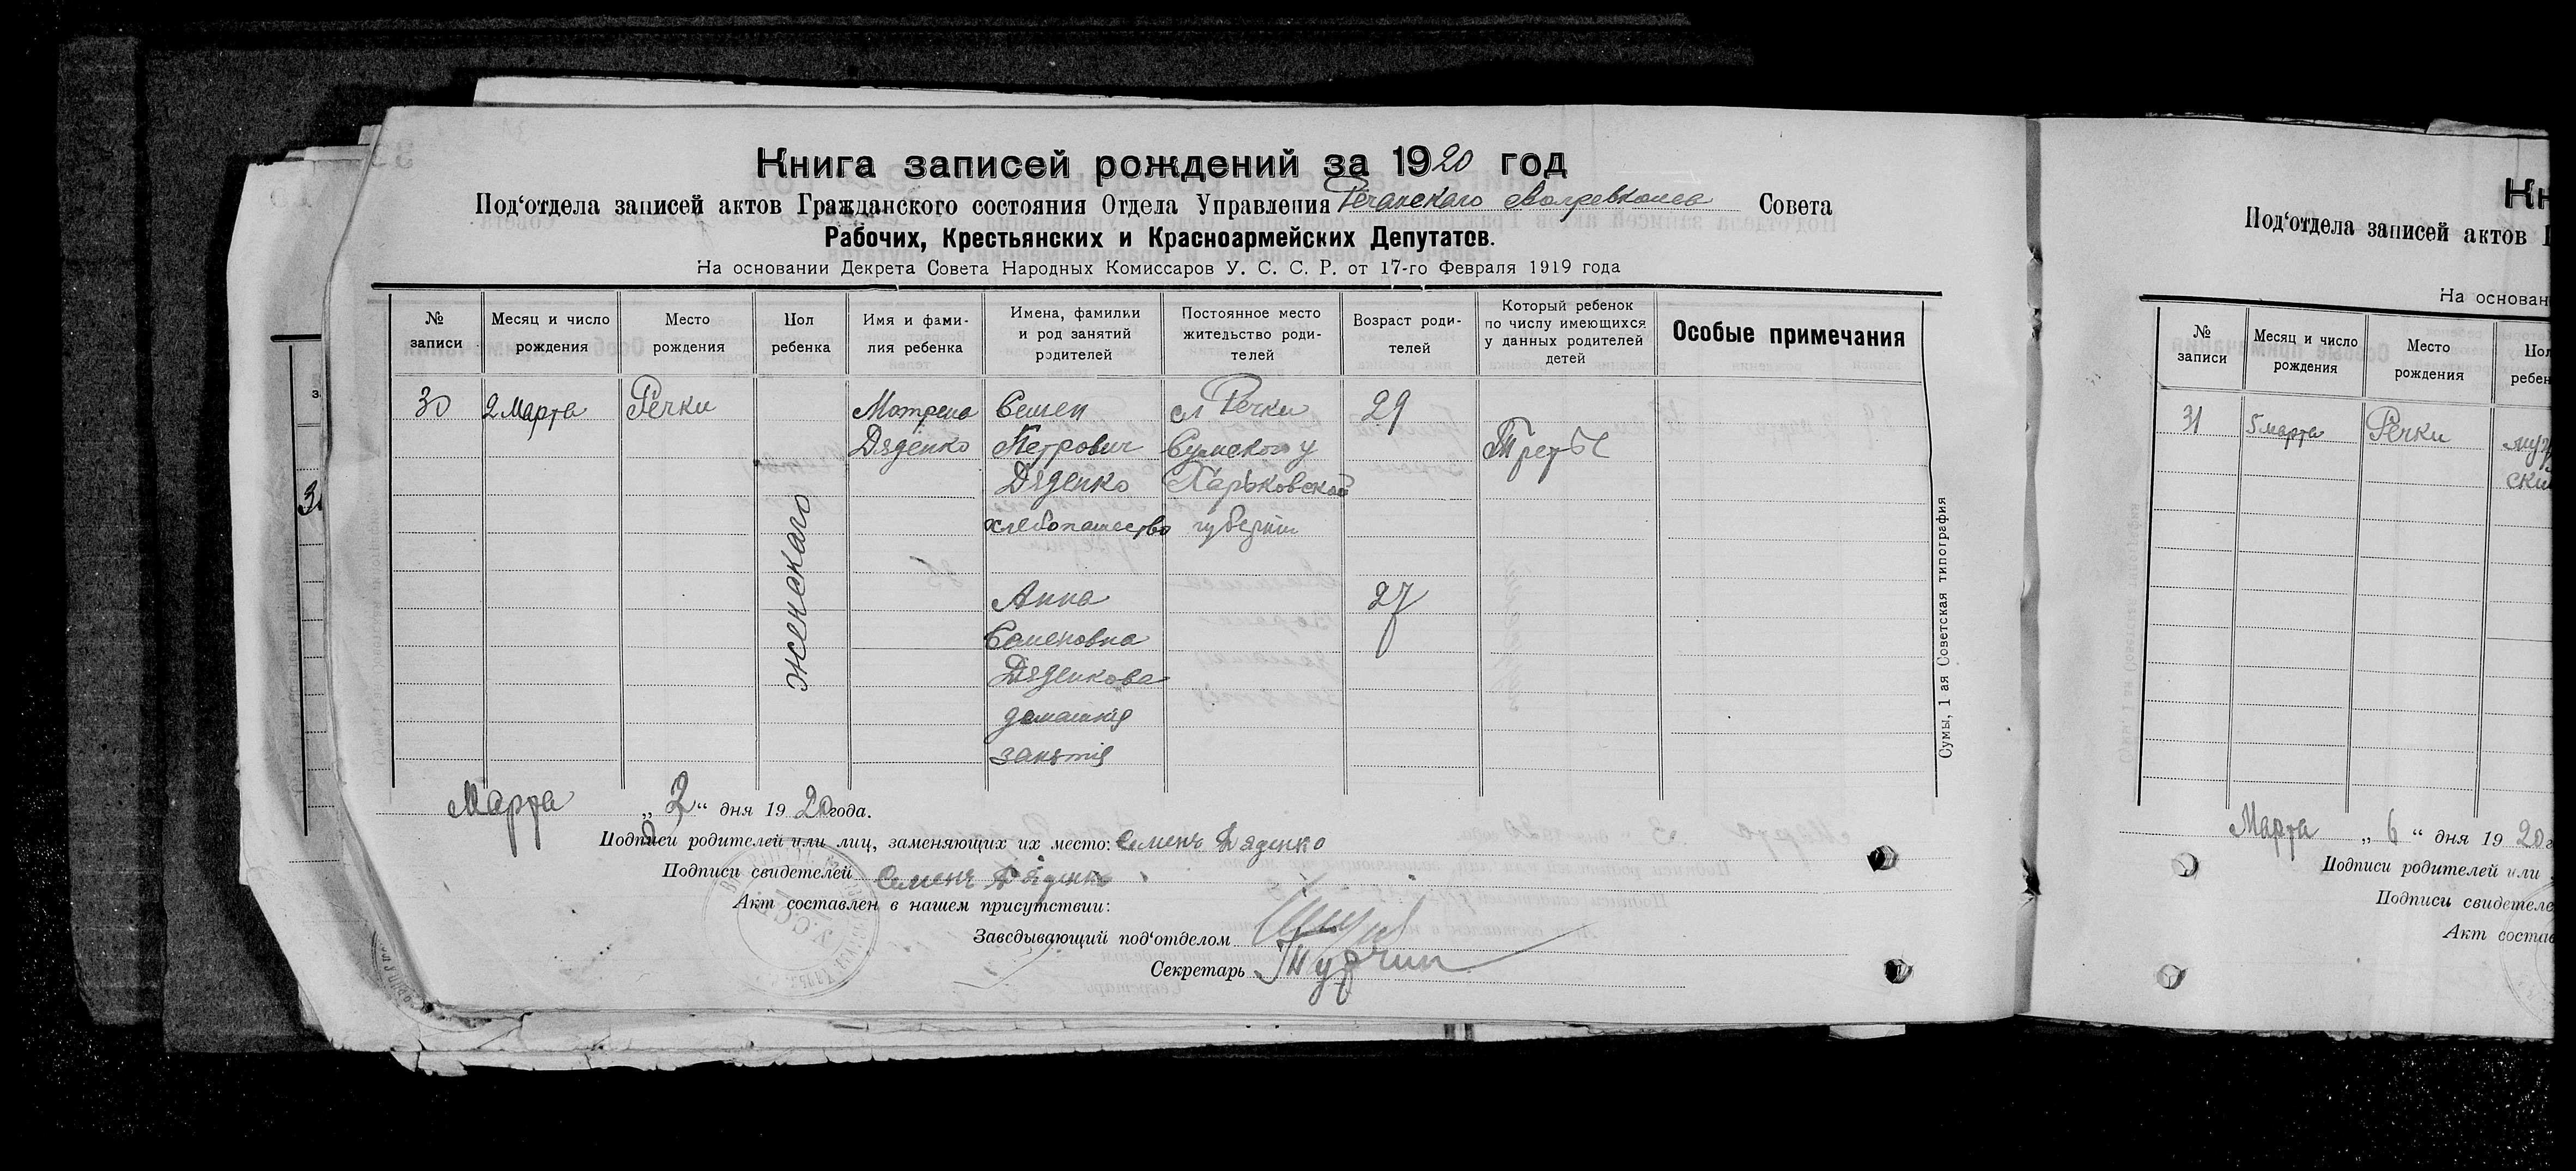 Книга записей рождений за 1920 год
Под‘отдела записей актов Гражданского состояния Отдела Управления Речанскаго Волревкома Совета
Рабочих, Крестьянских и Красноармейских Депутатов.
На основании Декрета Совета Народных Комиссаров У. С. С. Р. от 17-го Февраля 1919 года
№ записи
Месяц и число рождения
Место рождения
Пол ребенка
Имя и фами-
лия ребенка
Имена, фамилии
и род занятий
родителей
Постоянное место
жительство роди-
телей
Возраст роди-
телей
Который ребенок
по числу имеющихся
у данных родителей
детей
Особые примечания
30
2 Марта
Речки
женскаго
Матрена
Дяденко
Семен
Петрович
Дяденко
хлебопашество
сл Речки
Сумского у
Харьковской
губернии
29
Третье
Анна
Семеновна
Дяденкова
домашнія
занятія
27
Сумы, 1 ая Советская типография
Марта „2“ дня 1920 года.
Подписи родителей или лиц, заменяющих их место: Семенъ Дяденко
Подписи свидетелей Семенъ Дяденко
Акт составлен в нашем присутствии:
Заведывающий под‘отделом
Секретарь
Кн
Под‘отдела записей актов Г
На основан
№ записи
Месяц и число рождения
Место рождения
Пол
ребен
31
5 марта
Речки
муж
ски
Марта „6“ дня 1920 г
Подписи родителей или
Подписи свидетеле
Акт состав